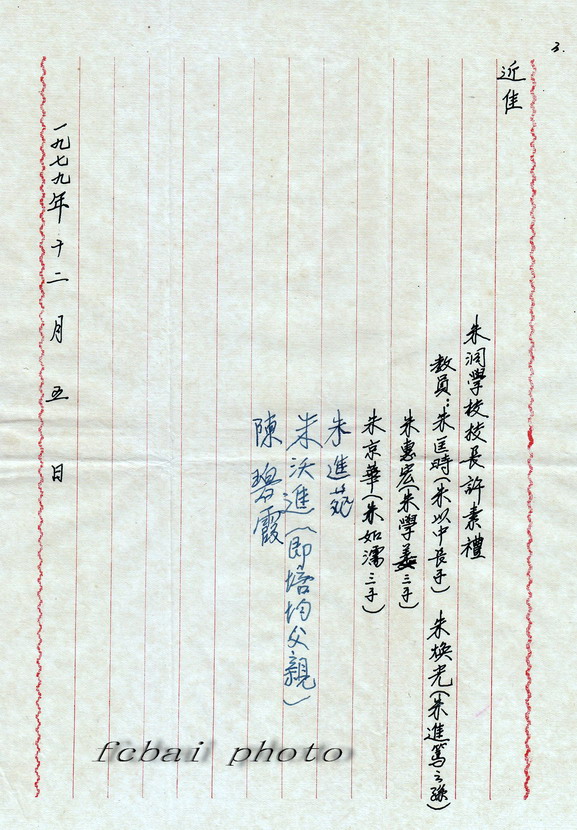 3.
近佳
朱洞學校校長許素禮
教員：朱匡時（朱以中長子） 朱煥光（朱進篤之孫）
朱惠宏（朱學 三子）
朱京華（朱如濡三子）
朱進苑
朱沃進（即培均父親）
陳碧霞
一九七九年十二月五日
fcbai photo